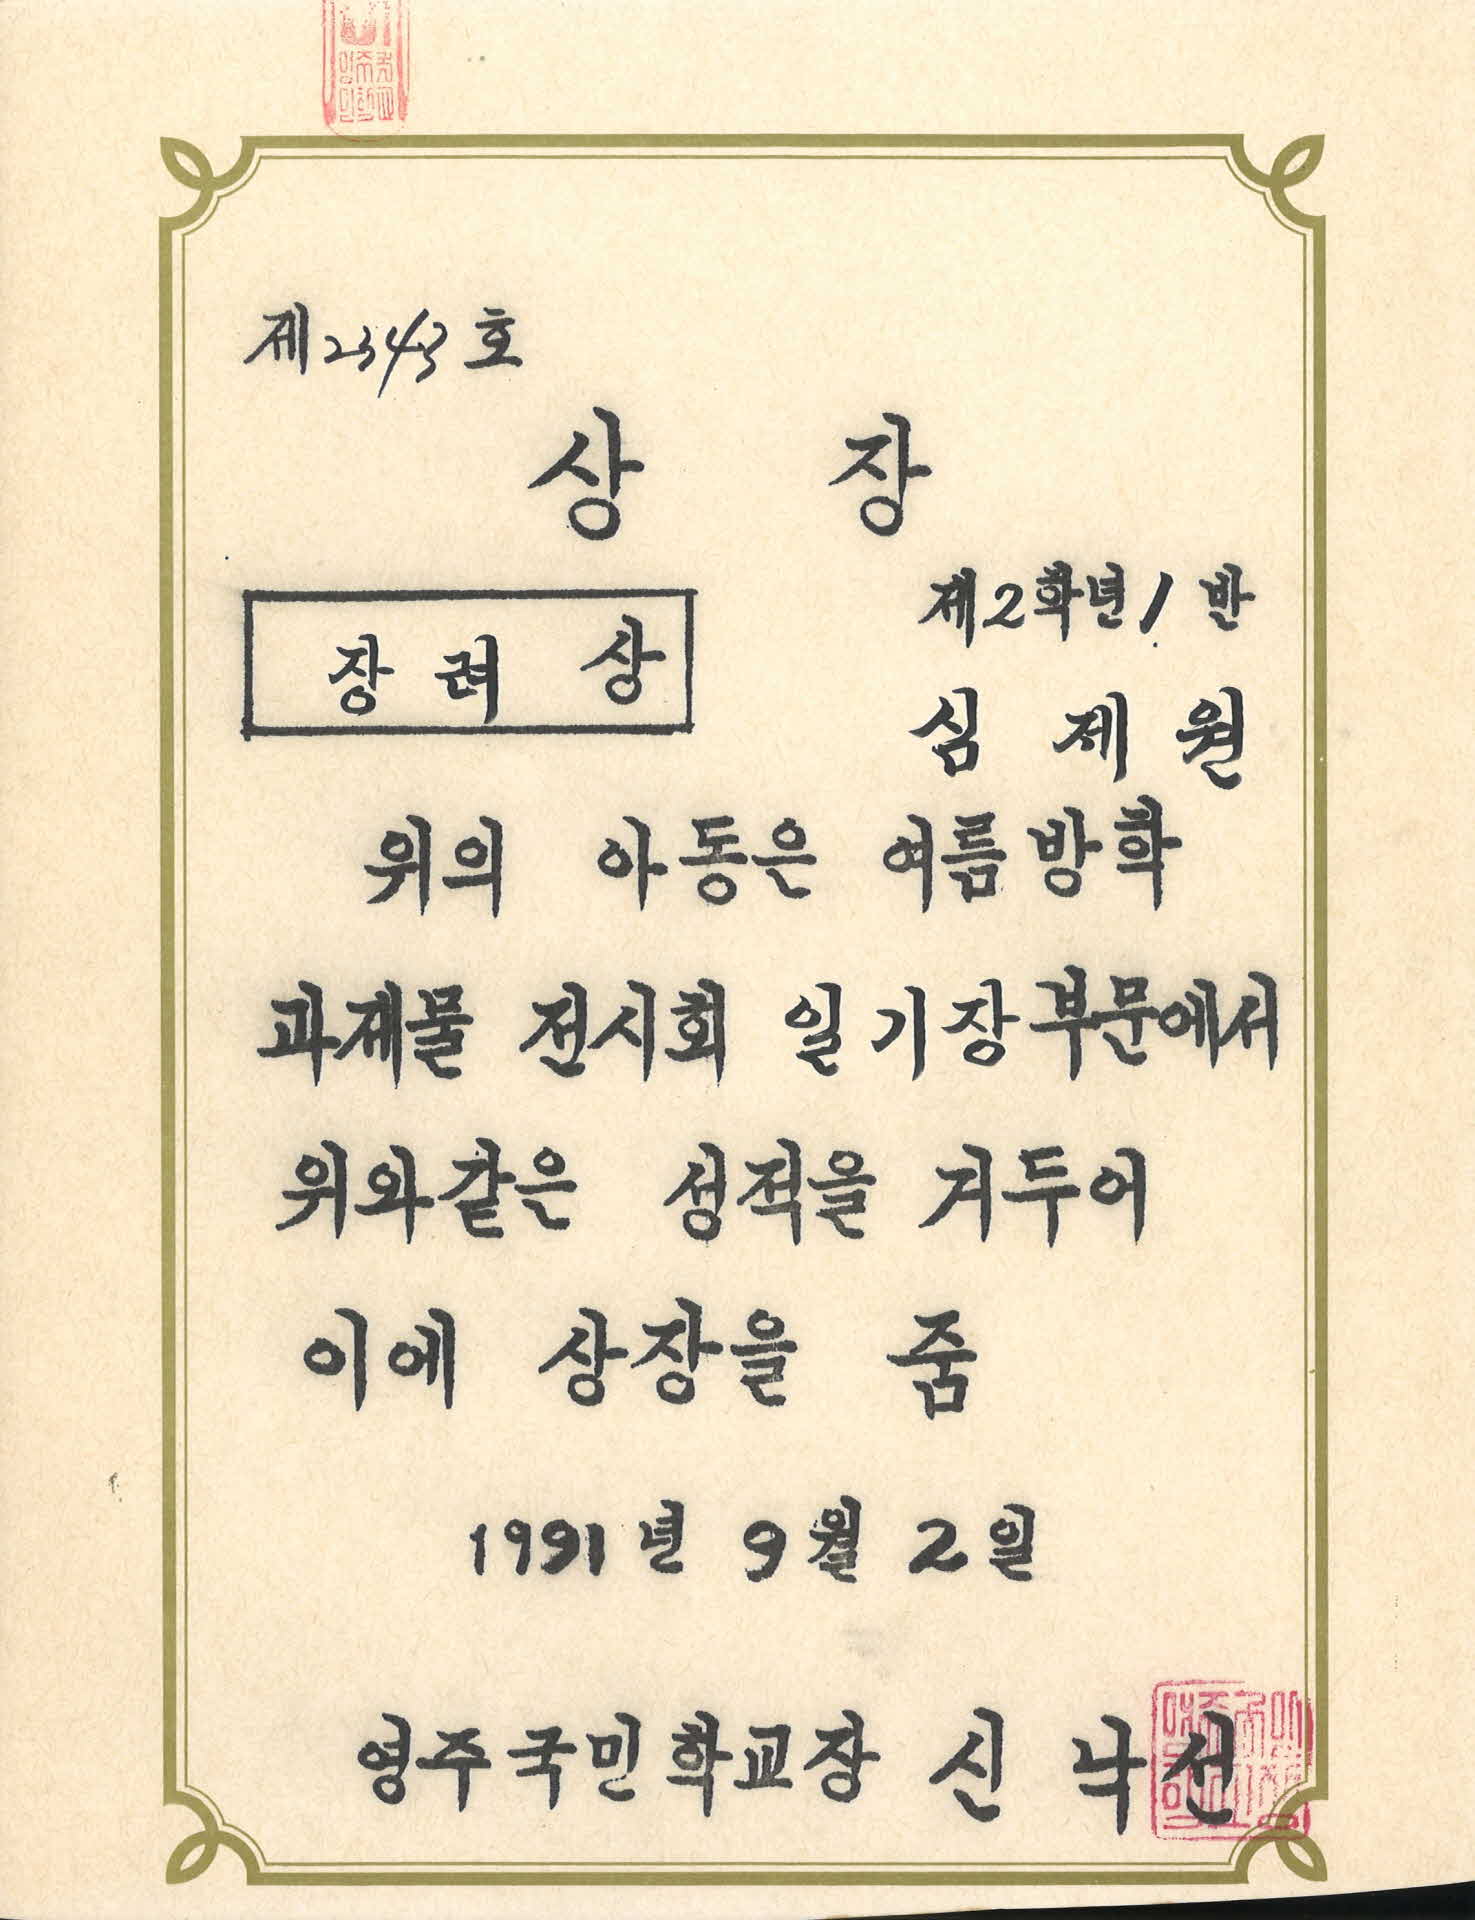 제2343호
상 장
제2학년 1반
장려상
심제원
위의 아동은 여름방학
과제물 전시회 일기장부문에서
위와같은 성적을 거두어
이에 상장을 줌
1991년 9월 2일
영주국민학교장 신낙선